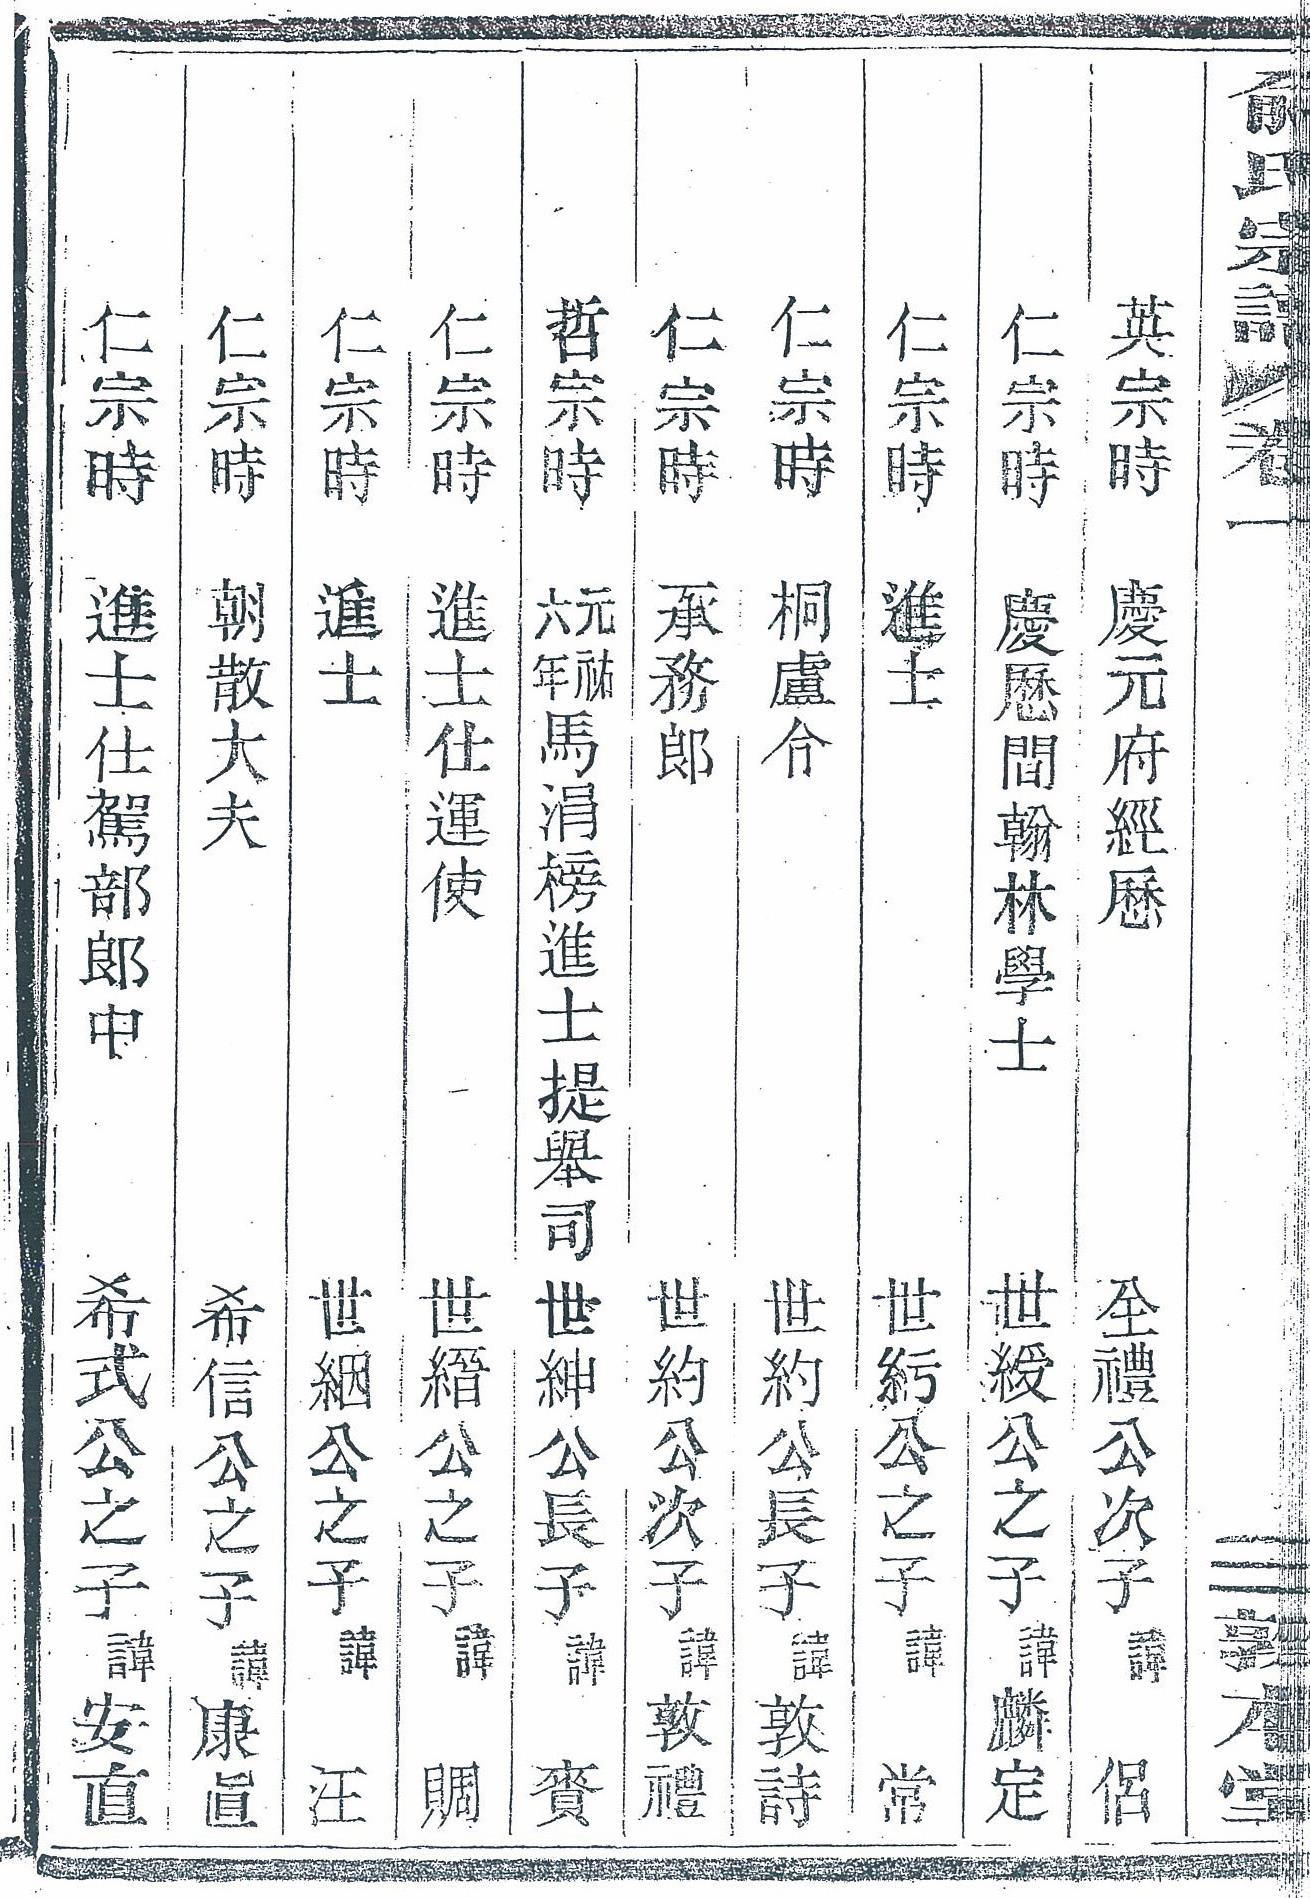 俞氏宗譜 卷一 三 敦本堂
英宗時 慶元府經歷 至禮公次子 諱 侶
仁宗時 慶歷間翰林學士 世綬公之子 諱 麟定
仁宗時 進士 世紆公之子 諱 常
仁宗時 桐盧令 世約公長子 諱 敦詩
仁宗時 承務郎 世約公次子 諱 敦禮
哲宗時 元祐六年馬涓榜進士提舉司 世紳公長子 諱 賚
仁宗時 進士仕運使 世縉公之子 諱 賙
仁宗時 進士 世絪公之子 諱 汪
仁宗時 朝散大夫 希信公之子 諱 康眞
仁宗時 進士仕駕部郎中 希式公之子 諱 安直